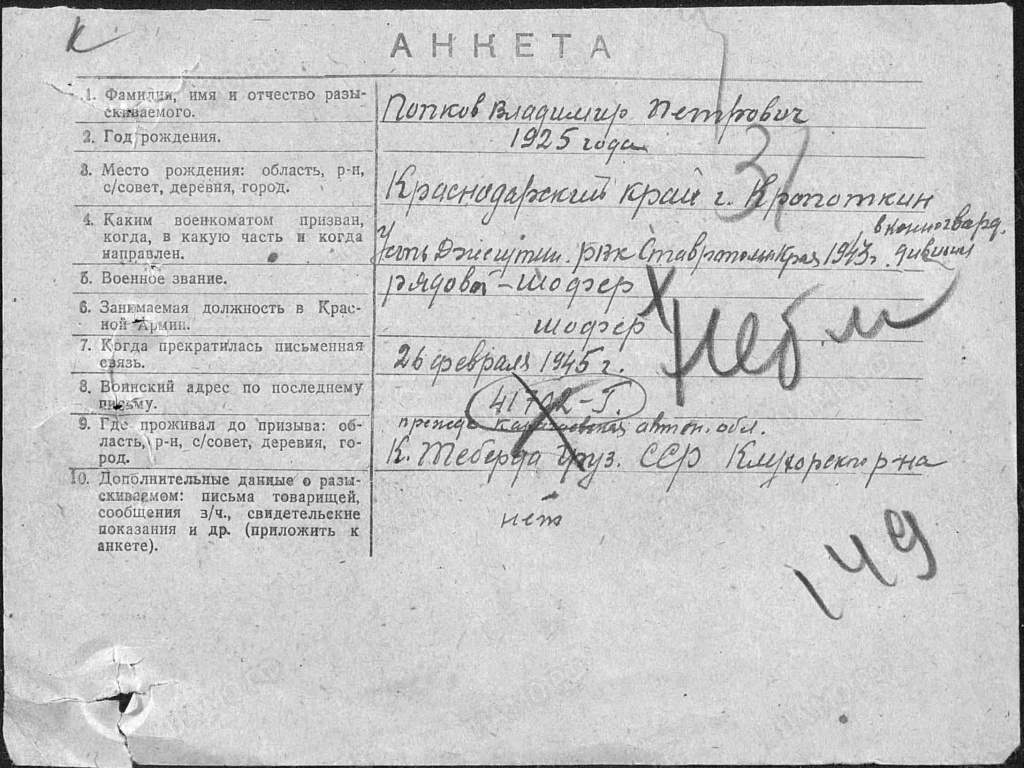 К
АНКЕТА
1. Фамилия, имя и отчество разы-
скиваемого.
Попков Владимир Петрович
2. Год рождения.
1925 года
31
3. Место рождения: область, р-н,
с/совет, деревня, город.
Краснодарский край г. Кропоткин
4. Каким военкоматом призван,
когда, в какую часть и когда
направлен.
в конногвард.
Усть Джегутин. рвк Ставропольск края 1943 г. дивизии
5. Военное звание.
рядовой - шофер
6. Занимаемая должность в Крас-
ной Армии.
шофер
7. Когда прекратилась письменная
связь.
26 февраля 1945 г.
8. Воинский адрес по последнему
письму.
41702-
9. Где проживал до призыва: об-
ласть, р-н, с/совет, деревня, го-
род.
прежде Карачаевская автон. обл.
К. Теберда Груз. ССР Клухорский р-на
10. Дополнительные данные о разы-
скиваемом: письма товарищей,
сообщения з/ч., свидетельские
показания и др. (приложить к
анкете).
нет
149